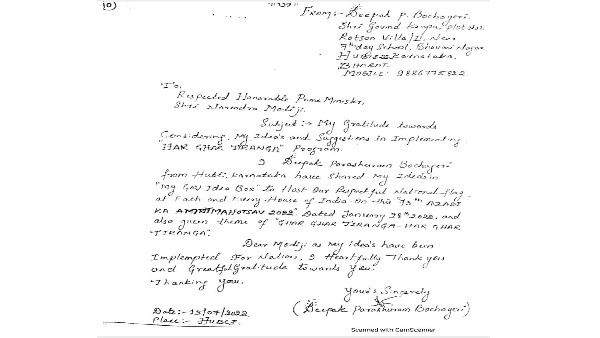 From:- Deepak P. Bochageri.
Shri Govind Krupa, Plot No:
Rotson Villa/II, Near
7th day School, Bhavani Nagar
Karnataka.
BHARAT.
MOBILE:
To,
Respected Honorable Prime Minister,
Shri Narendra Modiji.
Subject:- My Gratitude towards
Considering, My Idea's and Suggestions in Implementing
"HAR GHAR TIRANGA" Program.
I Deepak Parashuram Bochageri
from Hubli, Karnataka have Shared My Idea's in
"My Gov Idea Box" to Host Our Respectful National flag
at Each and Every House of India On this "75th AZADI
KA AMRITMAHOTSAV 2022" Dated January 2022, and
also given theme of "GHAR GHAR TIRANGA-HAR GHAR
TIRANGA".
Dear Modiji as my idea's have been
Implempted For Nation, I Heartfully Thank you
and Greatful Gratitude towards you.
Thanking You.
Your's Sincerely
(Deepak Parashuram Bochageri)
Date:- 15/07/2022
Place:- HUBLI.
Scanned with CamScanner